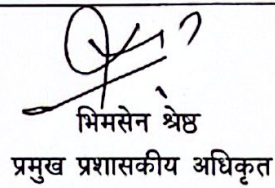 भिमसेन श्रेष्ठ
प्रमुख प्रशासकीय अधिकृत